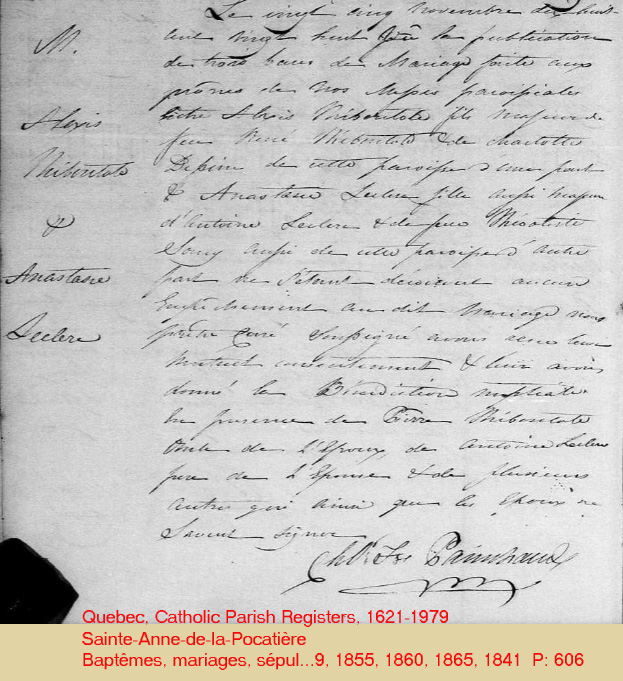 M.
Alexis
Thiboutote
&
Anastasie
Leclerc
Le vingt cinq novembre dix huit
cent vingt huit la publication
de trois bans de Mariage faite aux
prônes de nos Messes paroissiales
entre Alexis Thiboutote fils majeur de
feu René Thiboutote & de charlotte
Depin de cette paroisse d'une part
& Anastasie Leclerc fille aussi majeure
d'Antoine Leclerc & de feue Théotiste
Soucy aussi de cette paroisse d'autre
part ne s'étant découvert aucun
Empêchement au dit Mariage nous
prêtre Curé Soussigné avons reçu leur
mutuel consentement & leur avons
donné la Bénédiction nuptiale
En presence de Pierre Thiboutote
Oncle de l'Epoux de Antoine Leclerc
pere de l'Epouse & de plusieurs
autres qui ainsi que les Epoux ne
savent signer
Chs Frs Painchaud
Quebec, Catholic Parish Registers, 1621-1979
Sainte-Anne-de-la-Pocatière
Baptêmes, mariages, sépul...9, 1855, 1860, 1865, 1841 P: 606